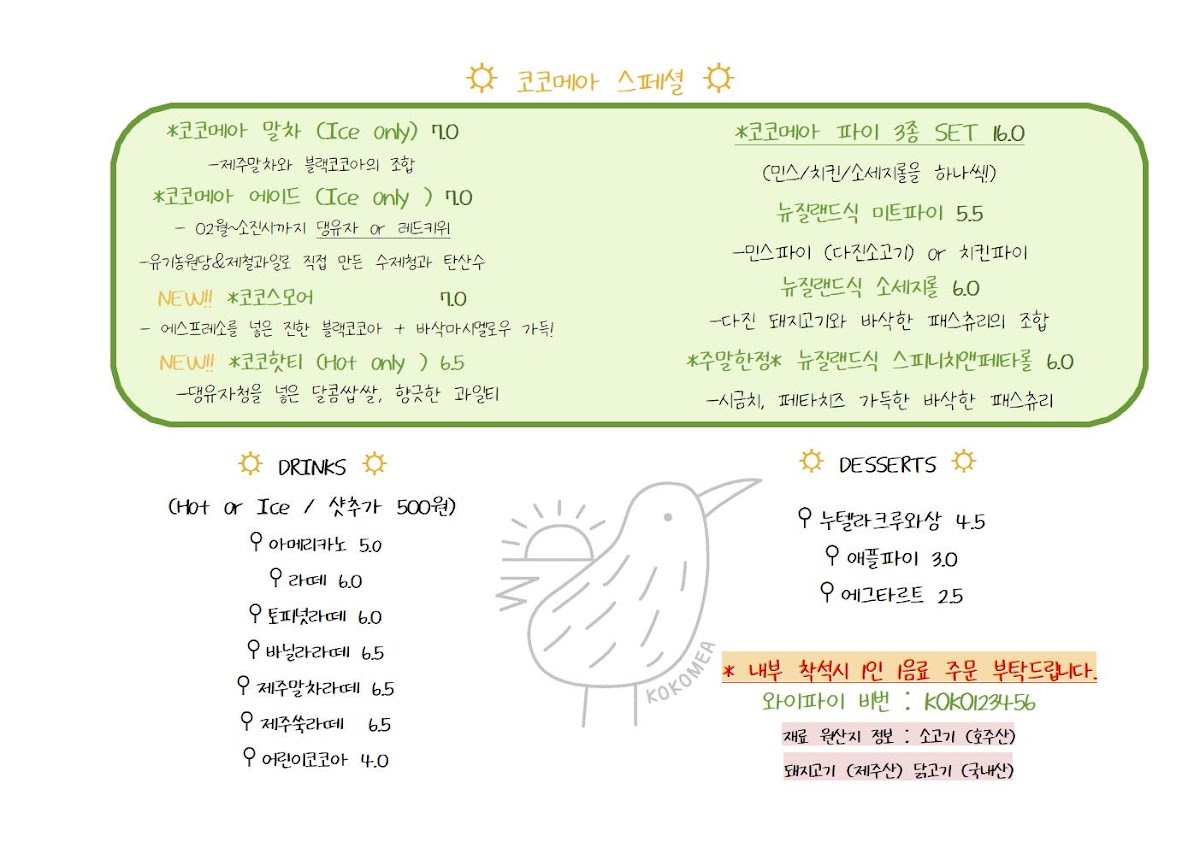 코코메아 스페셜
*코코메아 말차 (Ice only) 7.0
-제주말차와 블랙코코아의 조합
*코코메아 에이드 (Ice only ) 7.0
- 02월~소진시까지 댕유자 or 레드키위
-유기농원당&제철과일로 직접 만든 수제청과 탄산수
NEW!! *코코스모어 7.0
- 에스프레소를 넣은 진한 블랙코코아 + 바삭마시멜로우 가득!
NEW!! *코코핫티 (Hot only ) 6.5
-댕유자청을 넣은 달콤쌉쌀, 향긋한 과일티
*코코메아 파이 3종 SET 16.0
(민스/치킨/소세지롤을 하나씩!)
뉴질랜드식 미트파이 5.5
-민스파이 (다진소고기) or 치킨파이
뉴질랜드식 소세지롤 6.0
-다진 돼지고기와 바삭한 패스츄리의 조합
*주말한정* 뉴질랜드식 스피니치앤페타롤 6.0
-시금치, 페타치즈 가득한 바삭한 패스츄리
DRINKS
(Hot or Ice / 샷추가 500원)
아메리카노 5.0
라떼 6.0
토피넛라떼 6.0
바닐라라떼 6.5
제주말차라떼 6.5
제주쑥라떼 6.5
어린이코코아 4.0
KOKOMEA
DESSERTS
누텔라크루와상 4.5
애플파이 3.0
에그타르트 2.5
* 내부 착석시 1인 1음료 주문 부탁드립니다.
와이파이 비번 : KOKO123456
재료 원산지 정보 : 소고기 (호주산)
돼지고기 (제주산) 닭고기 (국내산)